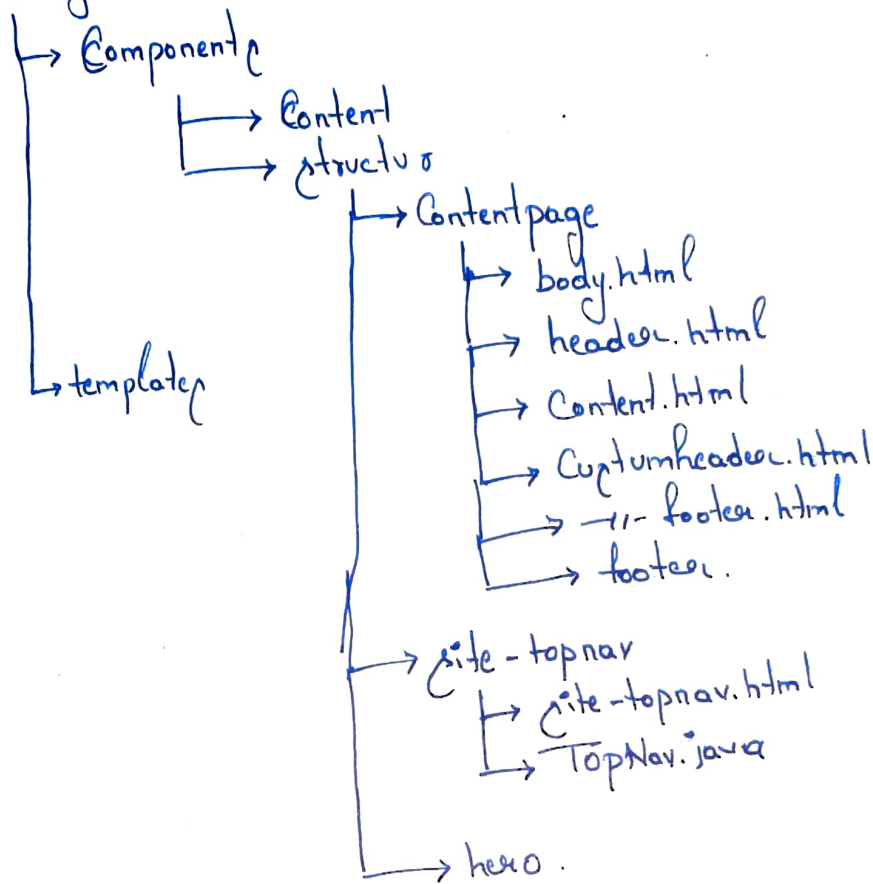 Components
Content
structur
Contentpage
body.html
header.html
templates
Content.html
Custumheader.html
-11- footer.html
footer.
site-topnav
site-topnav.html
TopNav.java
hero.